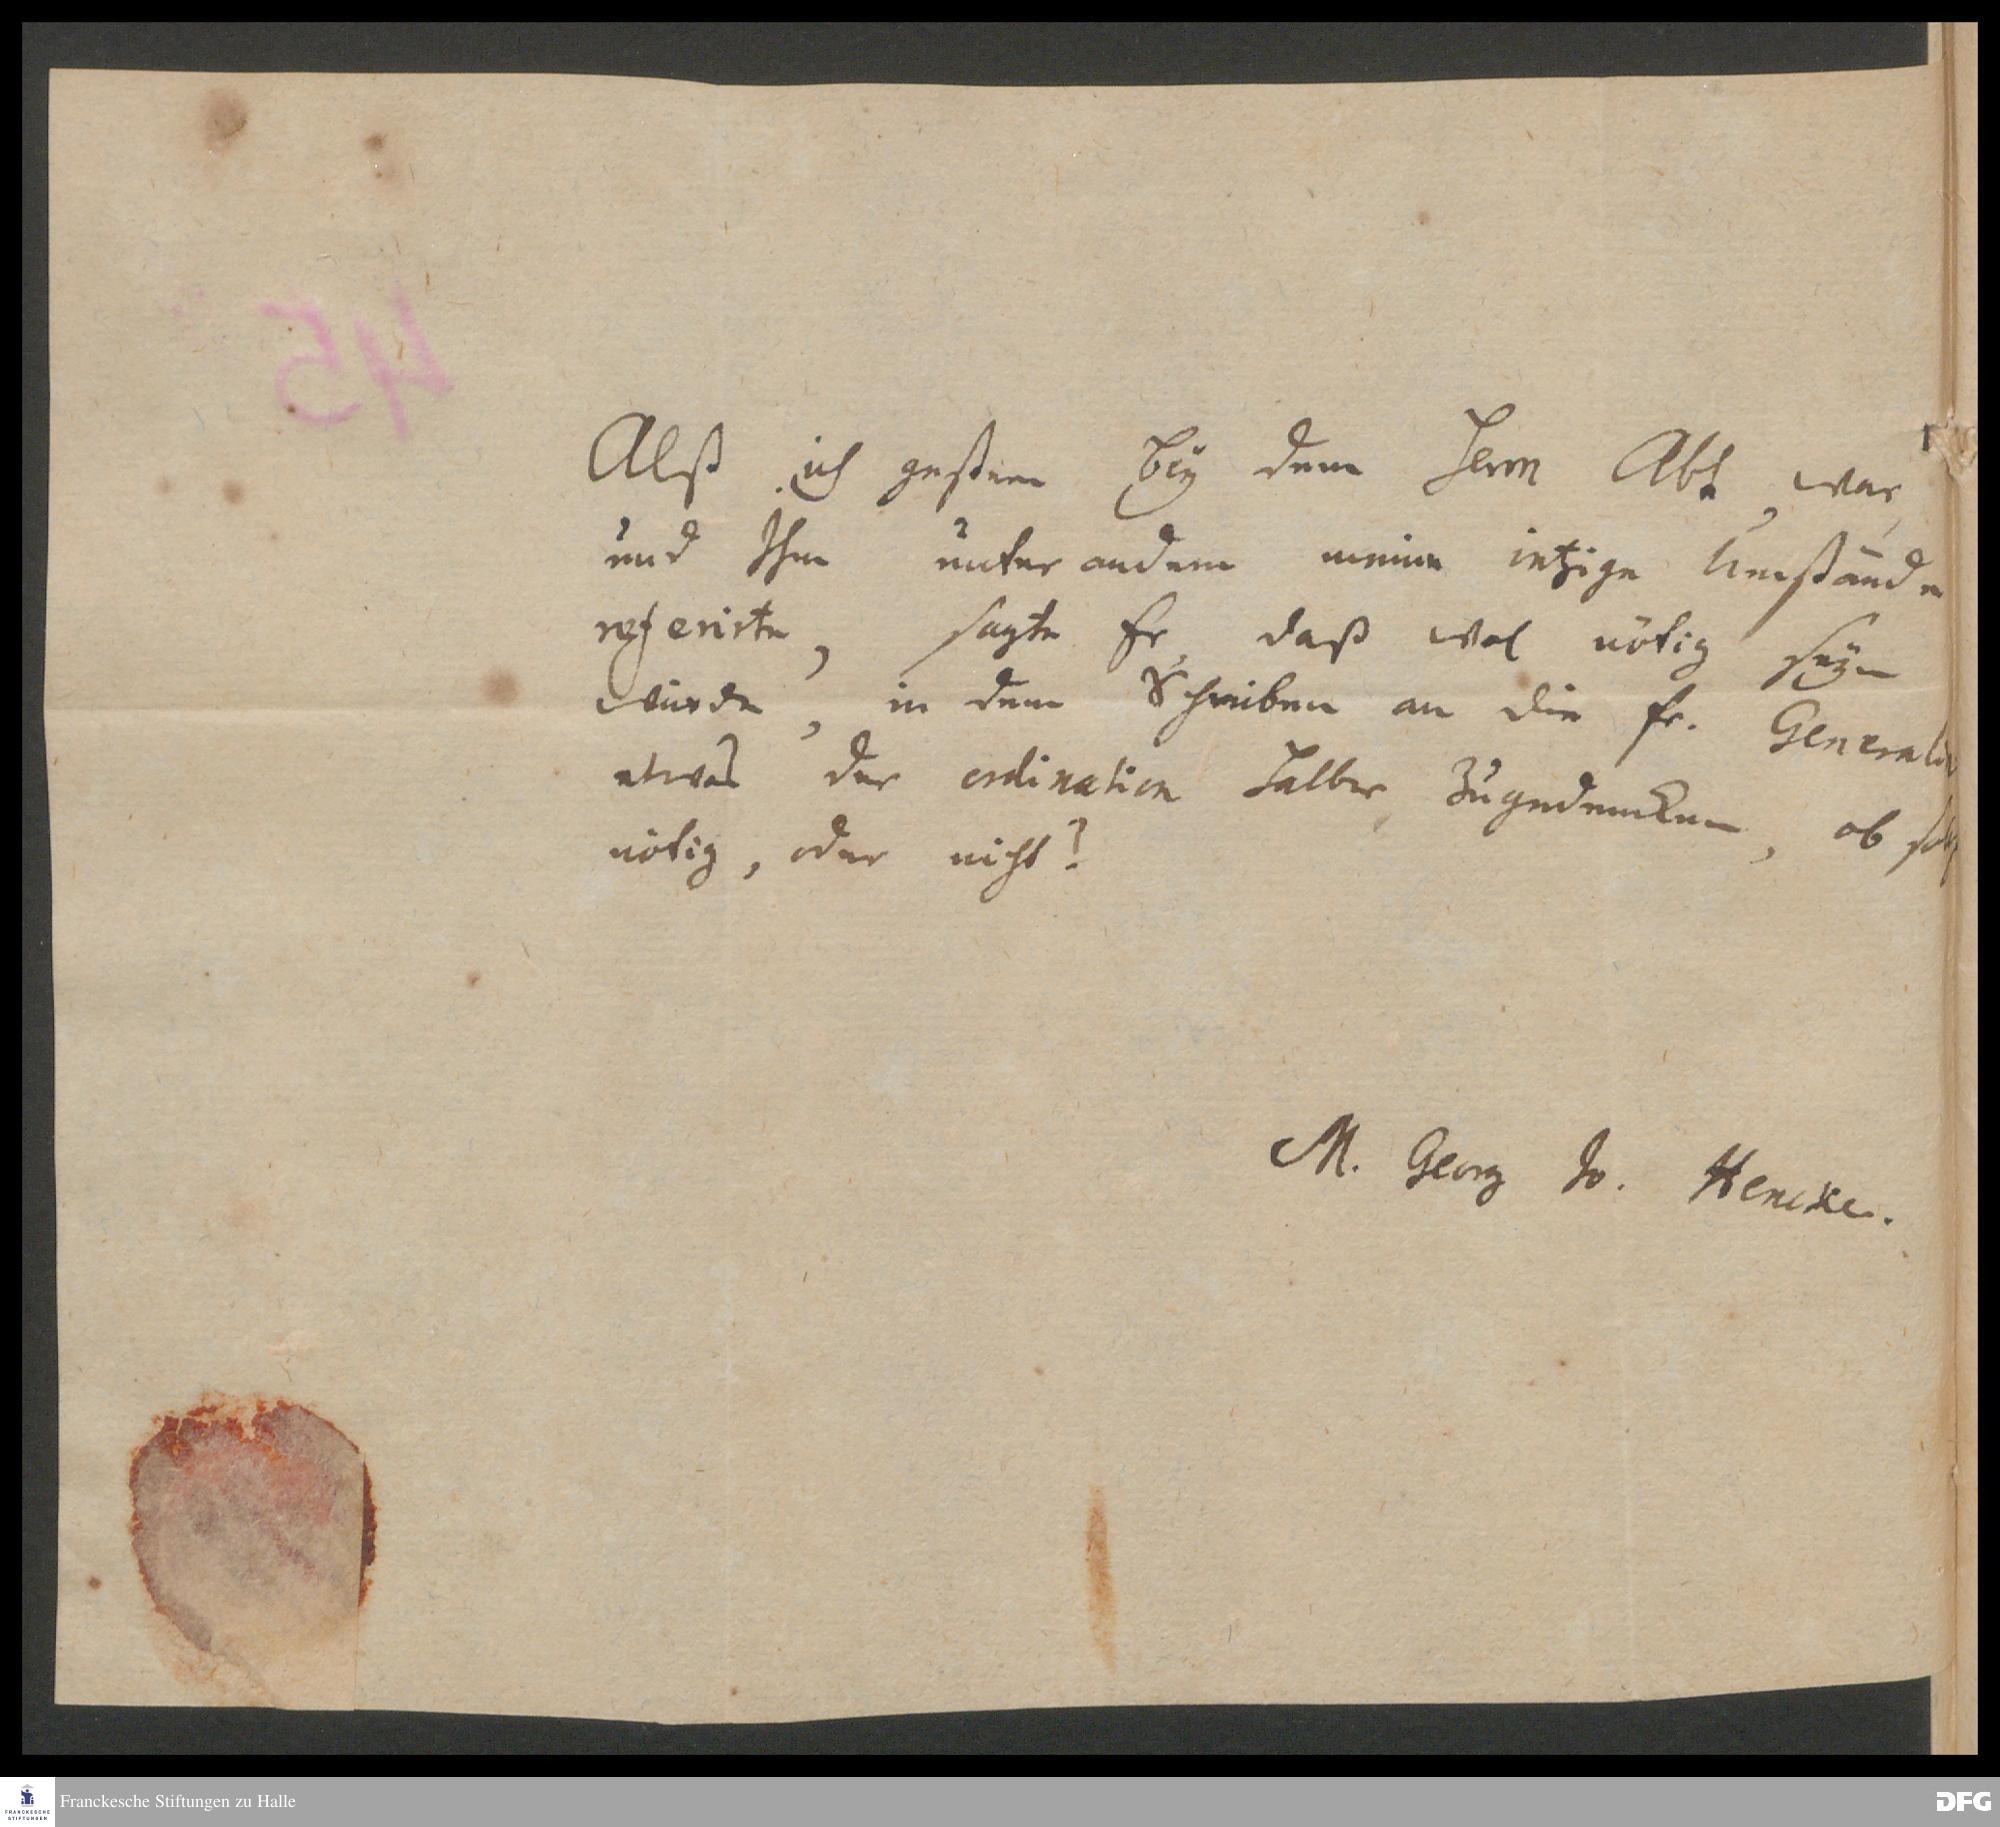 45
Alß ich gestern bey dem Herrn Abt war,
und Ihm unter andern meine ietzige Umstände
referirte, sagte Er, daß wol nötig seyn
würde, in dem Schreiben an die Fr. Generalin
etwas der ordination halber zugedencken, ob
nötig, oder nicht?
M. Georg Jo. Hencke.
FRANCKESCHE
STIFTUNGEN
Franckesche Stiftungen zu Halle
DFG